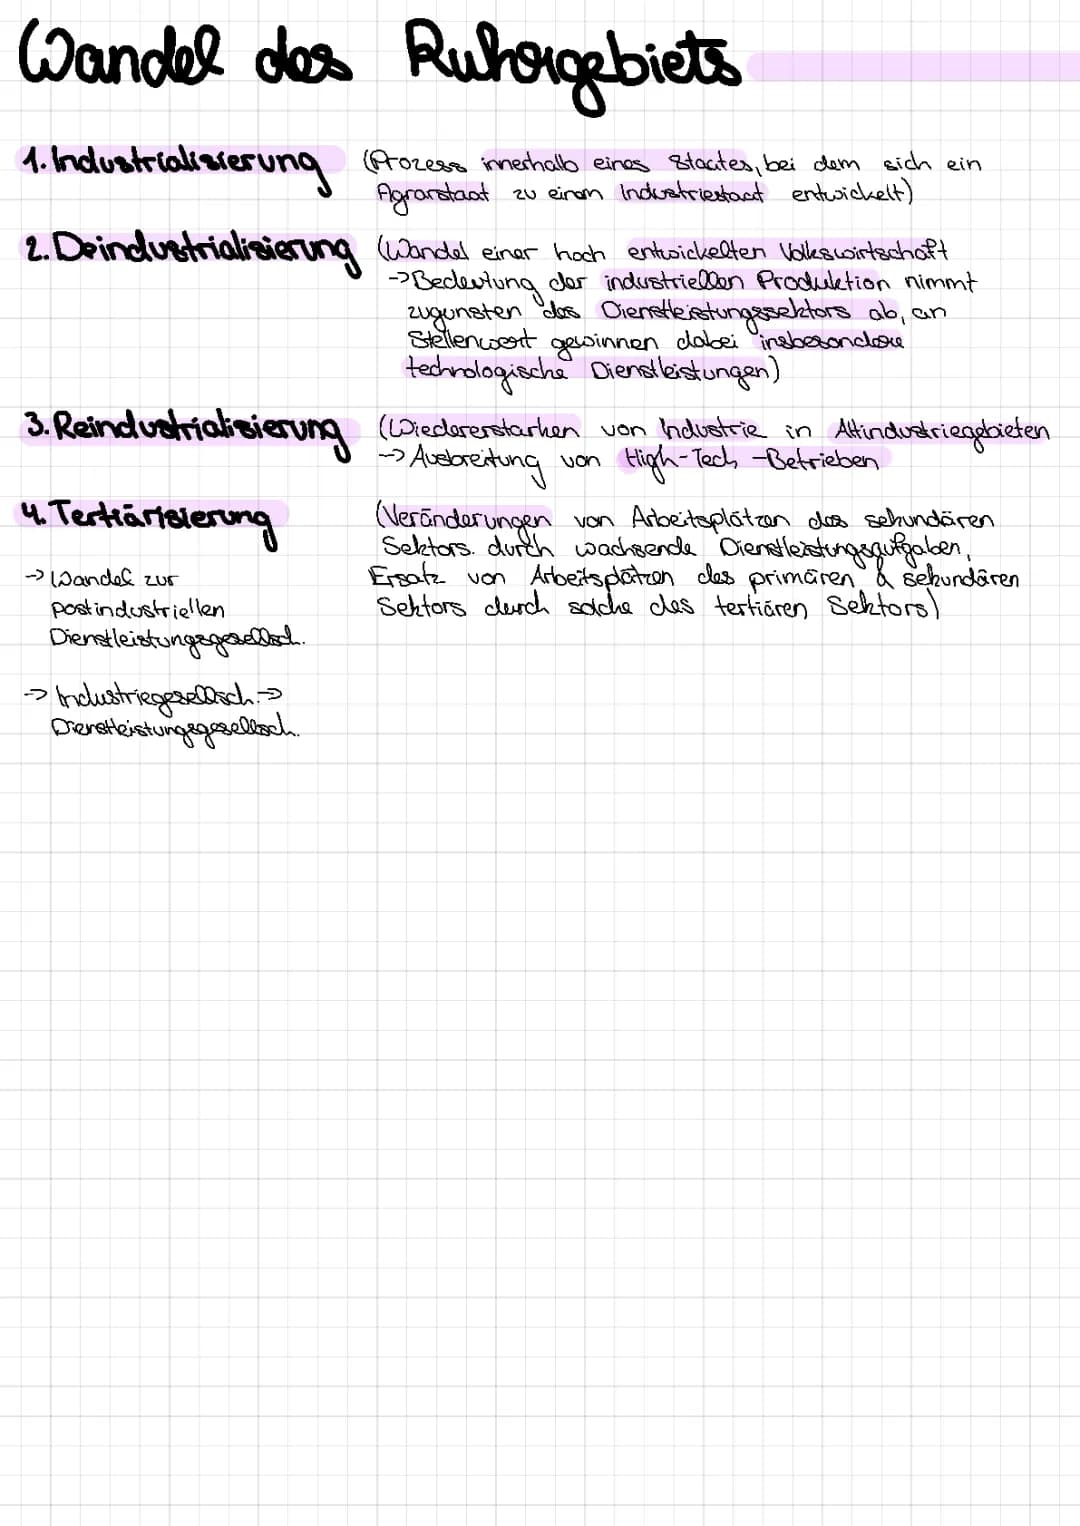 Wandel des Ruhrgebiets
1. Industrialisierung (Prozess innerhalb eines Staates, bei dem sich ein
Agrarstaat zu einem Industriestaat entwickelt)
2. Deindustrialisierung (Wandel einer hoch entwickelten Volkswirtschaft
-> Bedeutung der industriellen Produktion nimmt
zugunsten des Dienstleistungssektors ab, an
Stellenwert gewinnen dabei insbesondere
technologische Dienstleistungen)
3. Reindustrialisierung (Wiedererstarken von Industrie in Altindustriegebieten
-> Ausbreitung von High-Tech-Betrieben
4. Tertiärisierung (Veränderungen von Arbeitsplätzen des sekundären
Sektors. durch wachsende Dienstleistungsaufgaben,
Ersatz von Arbeitsplätzen des primären & sekundären
Sektors durch solche des tertiären Sektors)
-> Wandel zur
postindustriellen
Dienstleistungsgesellsch.
-> Industriegesellsch. =>
Dienstleistungsgesellsch.